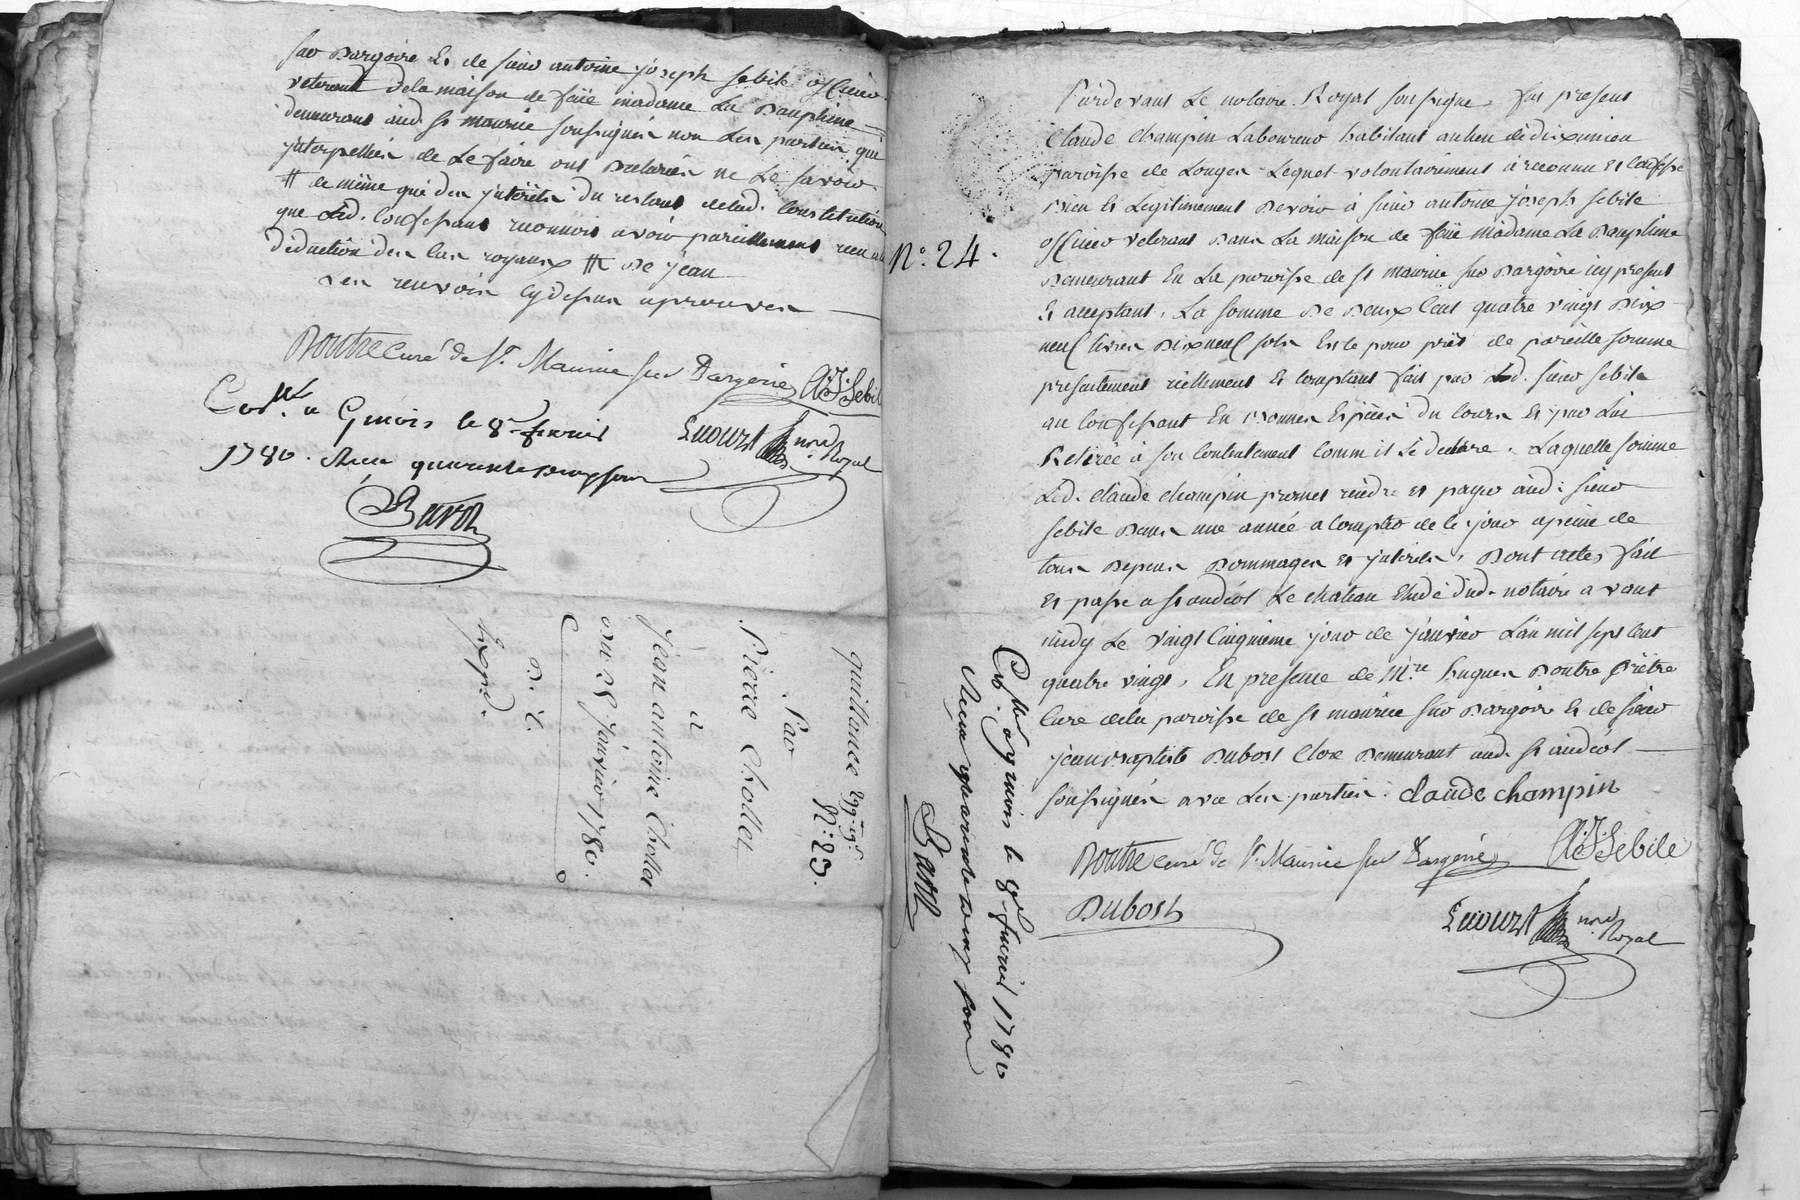 sur Dargoire Et de sieur antoine joseph sebile officier
veterant dela maison de feüe madame La Dauphine
demeurant aud. st maurice soussignés non Les parties qui
jnterpellées de Le faire ont Declarées ne Le savoir
# de même que des jnterêts du restant delad. Constitution
que Led. Confessant reconnoit avoir pareillement reçu
déduction des cas royaux # De jean
Les renvois cy dessus aprouvés
Boutre Curé de St. Maurice sur Dargoire A:J:Sebile
Con.lle a Gmois le 8. fevrier
1780. Reçu quarante deux sous
Ecourt nre. Royal
Baron
quittance 299.lt 19.s
N.º 23.
Par
Pierre Chollet
a
jean antoine Chollet
Du 25 janvier 1780.
D. C.
Exped.
N.º 24.
Pardevant Le notaire Royal soussigné, fut present
Claude champin Laboureur habitant au lieu de dizimieu
paroisse de Longes Lequel volontairement à reconnu et Confessé
Bien Et Legitimement Devoir à sieur antoine joseph sebile
officier veterant Dans La maison de feüe madame La Dauphine
Demeurant En La paroisse de st maurice sur Dargoire icy present
Et acceptant, La somme De Deux Cent quatre vingt Dix
neuf livres Dix neuf sols Et ce pour prêt de pareille somme
presentement réellement Et Comptant fait par Led. sieur sebile
au Confessant En Bonnes Espèces du Cours Et par Lui
Retirée à son Contentement Comm il Le declare. Laquelle somme
Led. claude champin promet rendre et payer aud. sieur
sebile Dans une année a Compter de ce jour a peine de
tous Depens Dommages et jnterets, Dont acte, fait
et passé a st andéol Le chateau Etude dud. notaire avant
midy Le vingt Cinquieme jour de janvier L'an mil sept Cent
quatre vingt, En présence de M.re hugues Boutre Prêtre
Curé dela paroisse de st maurice sur Dargoire Et de sieur
jean Baptiste Dubost Clerc Demeurant aud. st andéol
soussignés avec Les parties. Claude champin
Boutre Curé de St. Maurice sur Dargoire A:J:Sebile
Dubost
Ecourt nre. Royal
Con.lle a gmois le 8. fevrier 1780
Reçu quarante deux sous
Baron